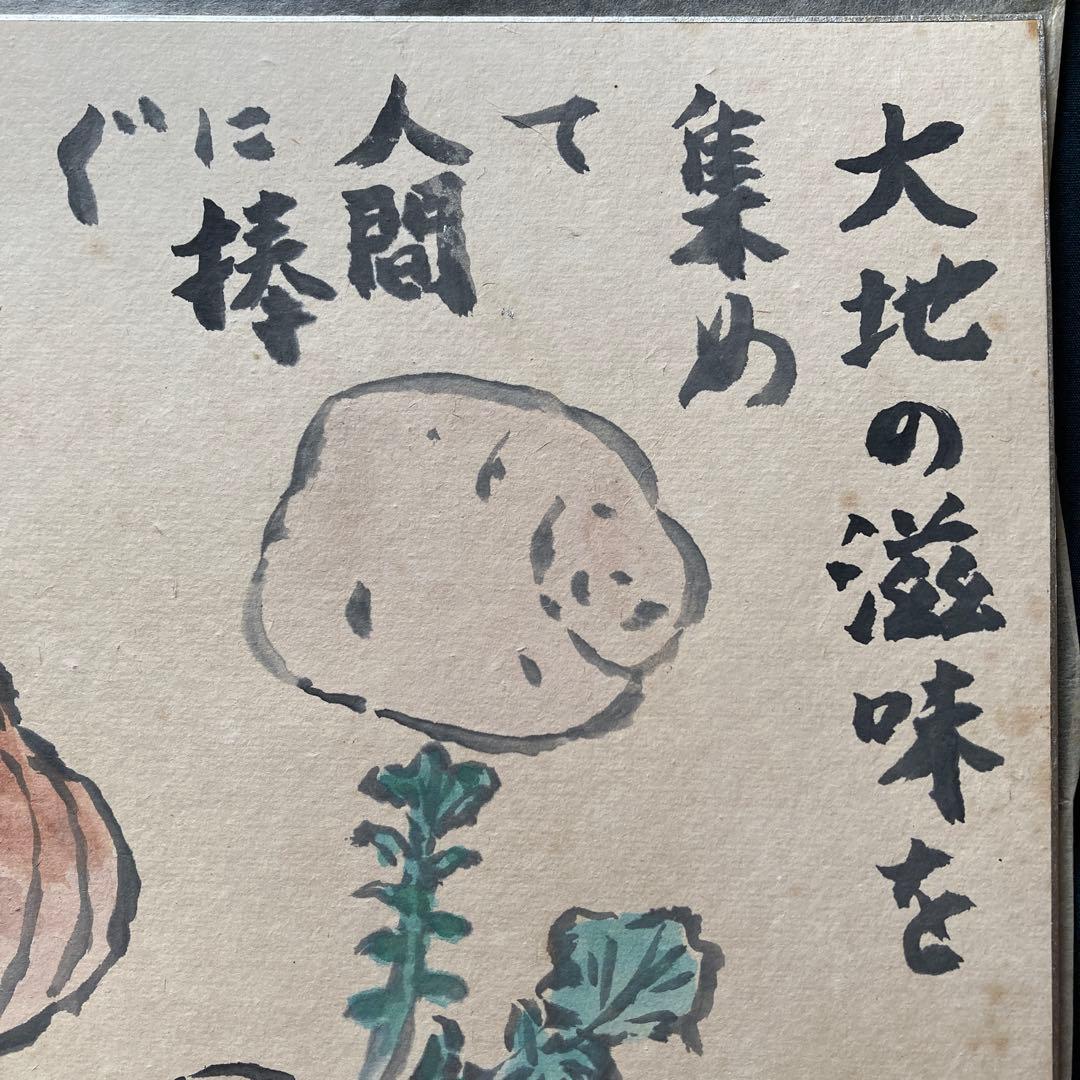 大地の滋味を
集め
て
人間
に捧
ぐ